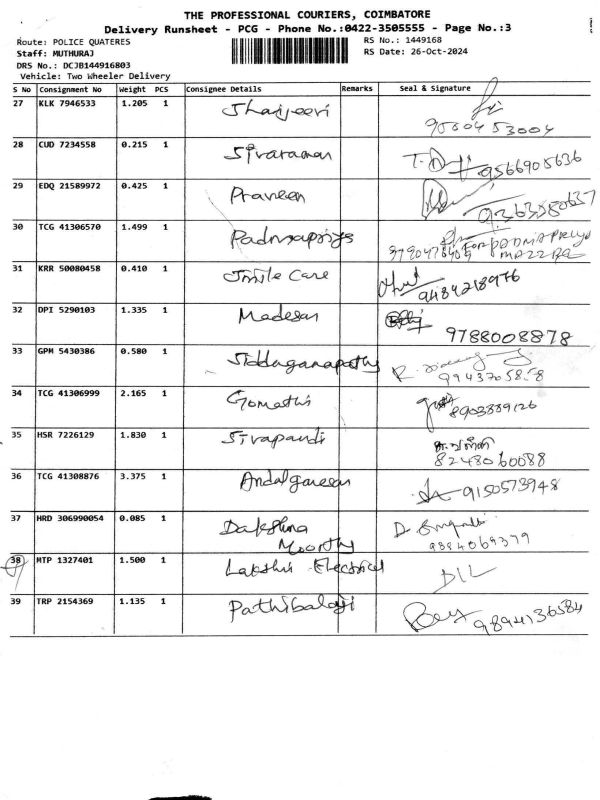 THE PROFESSIONAL COURIERS, COIMBATORE
Delivery Runsheet - PCG - Phone No.:0422-3505555 - Page No.:3
Route: POLICE QUATERES RS No.: 1449168
Staff: MUTHURAJ RS Date: 26-Oct-2024
DRS No.: DCJB144916803
Vehicle: Two Wheeler Delivery
S No Consignment No Weight PCS Consignee Details Remarks Seal & Signature
27 KLK 7946533 1.205 1
9500453004
28 CUD 7234558 0.215 1 Sivaraman
9566905636
29 EDQ 21589972 0.425 1 Praveen
9363580637
30 TCG 41306570 1.499 1 Padmapriya
31 KRR 50080458 0.410 1 Smile Care
9484218976
32 DPI 5290103 1.335 1 Madesan
9788008878
33 GPM 5430386 0.580 1 Siddaganapathy
34 TCG 41306999 2.165 1 Gomathi
8903889126
35 HSR 7226129 1.830 1 Sivapandi
8248060088
36 TCG 41308876 3.375 1
9150573948
37 HRD 306990054 0.085 1 Dakshna
Moorthy
38 MTP 1327401 1.500 1 Lakshmi Electrical
39 TRP 2154369 1.135 1 Pathibalaji
9894136584